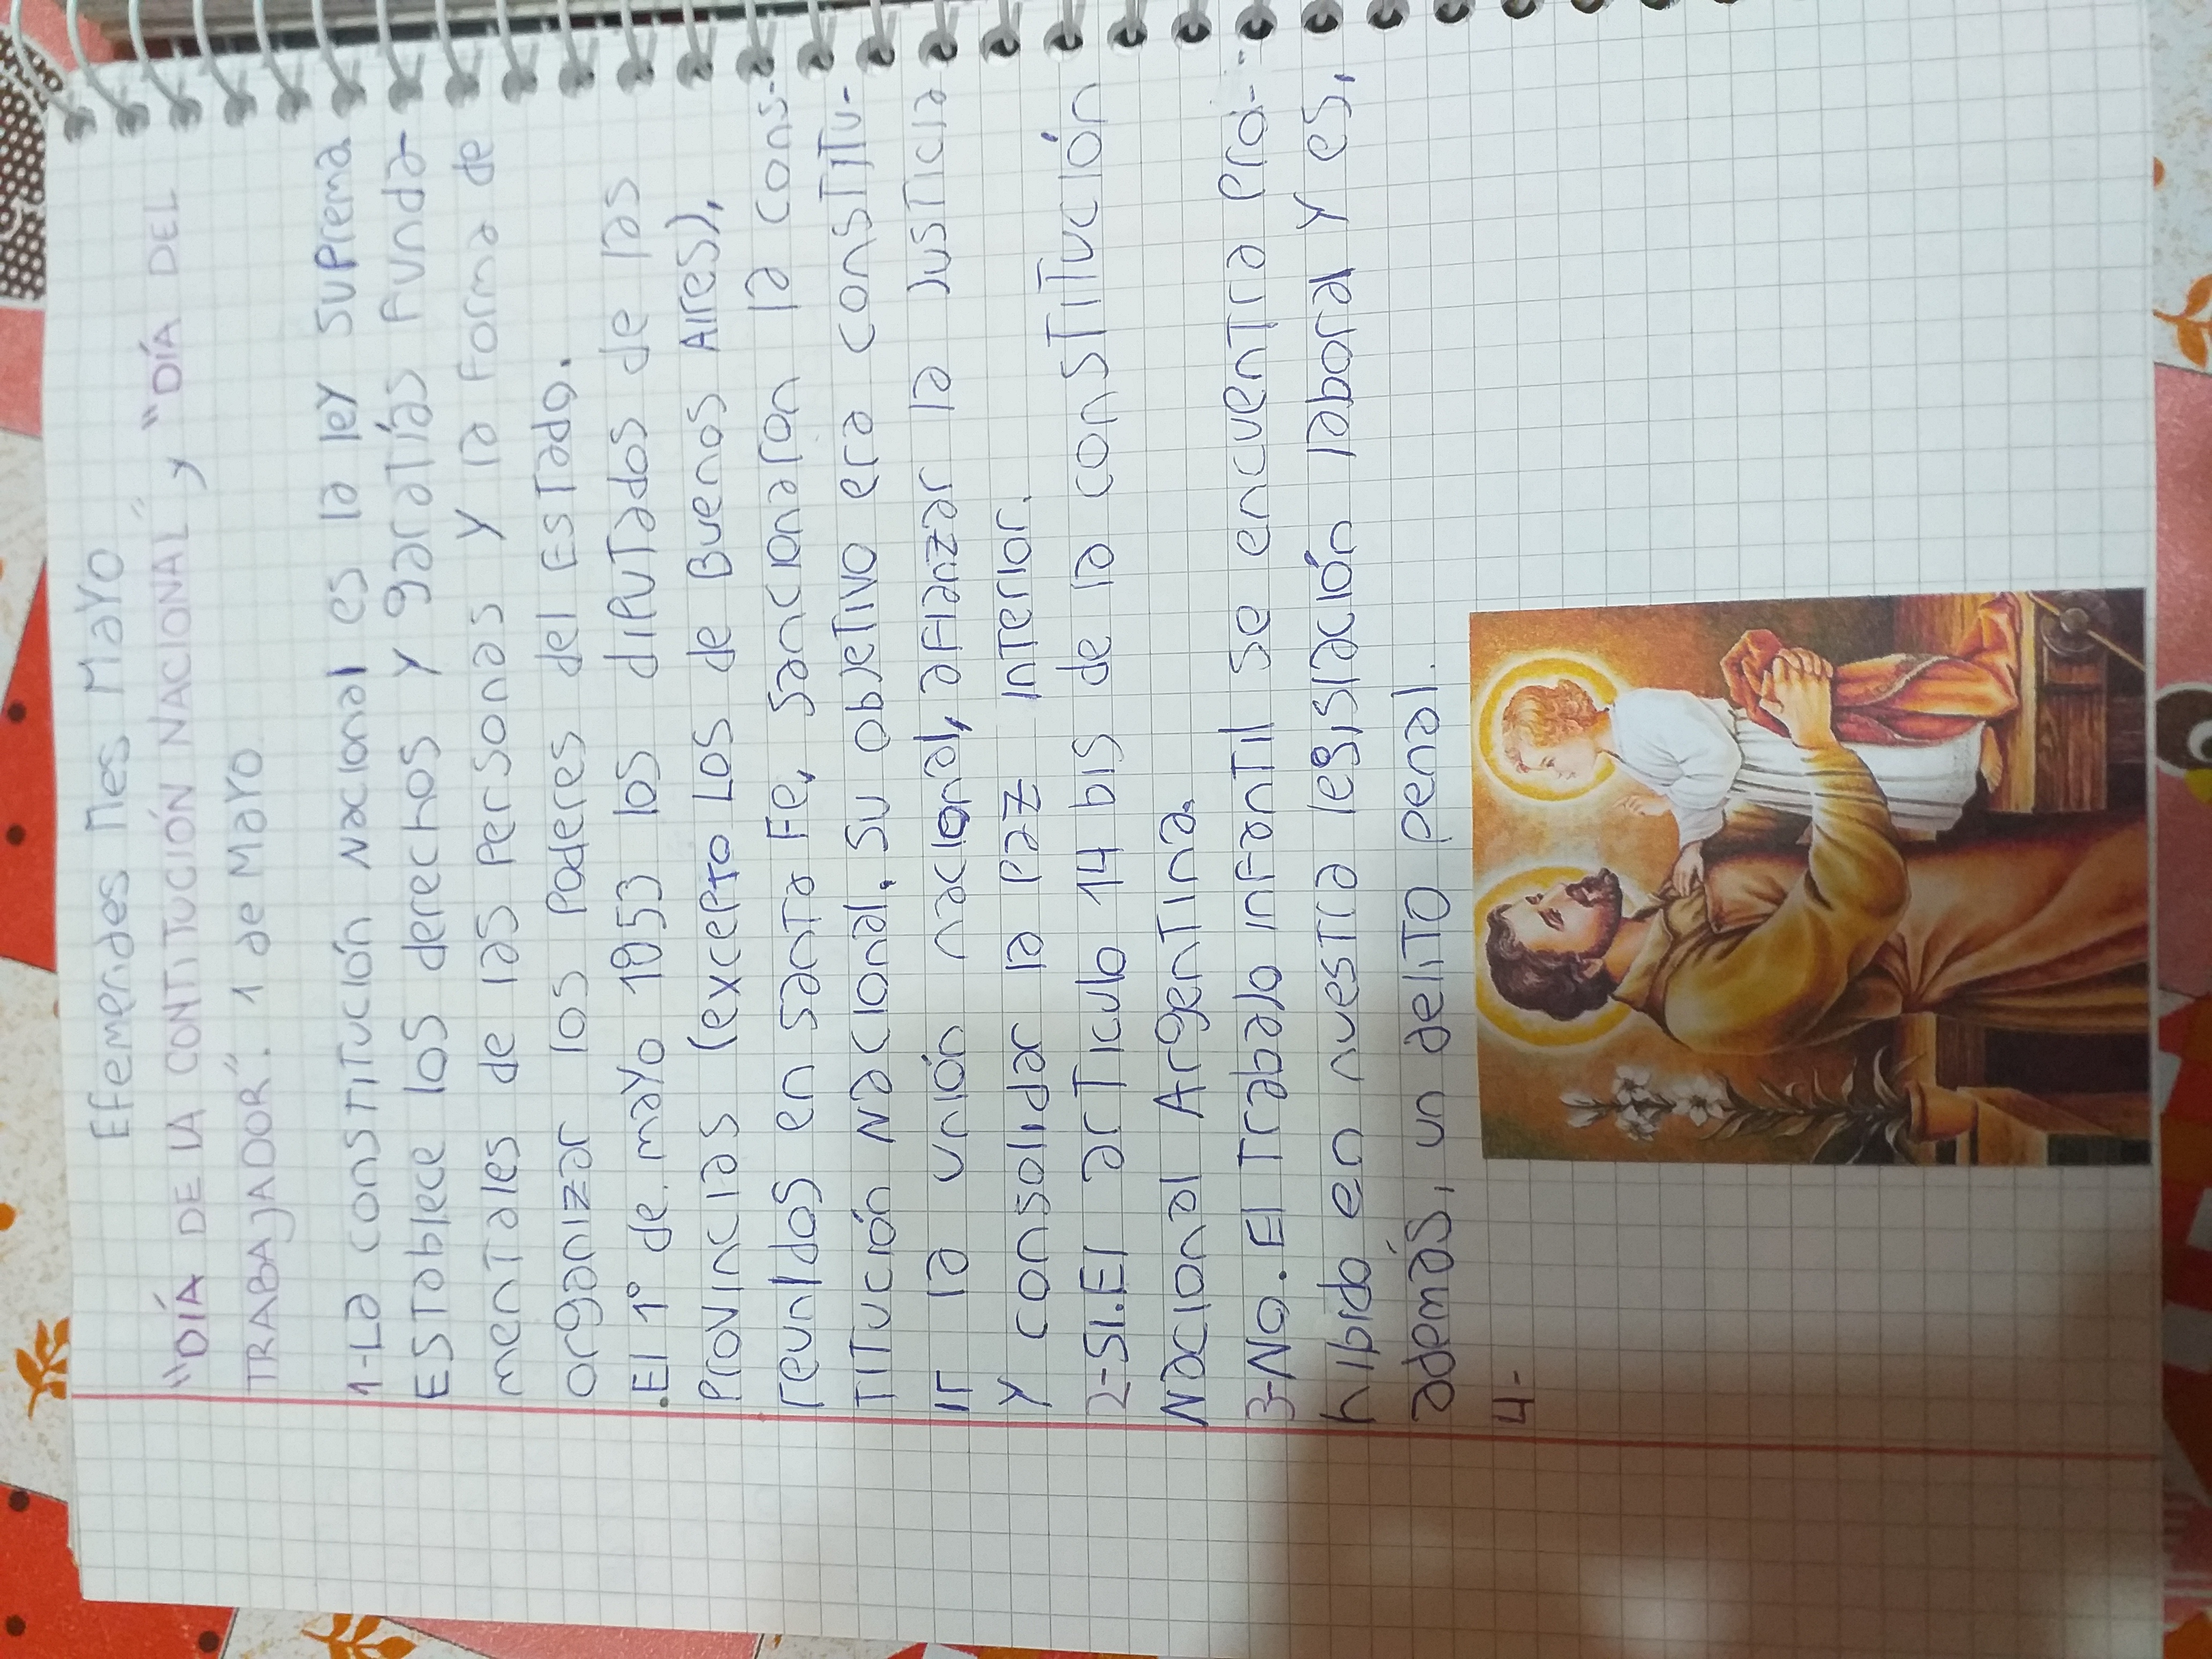 Efemerides Mes Mayo
"DÍA DE LA CONTITUCIÓN NACIONAL" y "DÍA DEL
TRABAJADOR". 1 de Mayo
1-La constitución Nacional es la ley suprema
Establece los derechos y garatías funda-
mentales de las personas y la forma de
organizar los poderes del Estado.
.El 1° de mayo 1853 los diputados de las
provincias (excepto Los de Buenos Aires),
reunidos en santa Fe, sancionaron la cons-
titución Nacional. su objetivo era constitu-
ir la unión nacional, afianzar la justicia
y consolidar la paz interior.
2-SI.El artículo 14 bis de la constitución
Nacional Argentina.
3-No. El trabajo infantil se encuentra pro-
hibido en nuestra legislación laboral y es,
además, un delito penal.
4-